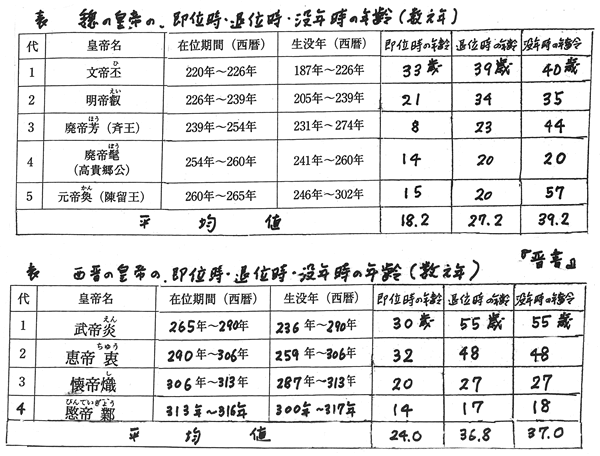 表 魏の皇帝の、即位時・退位時・没年時の年齢(数え年)
代 皇帝名 在位期間(西暦) 生没年(西暦) 即位時の年齢 退位時の年齢 没年時の年齢
1 文帝丕(ひ) 220年〜226年 187年〜226年 33歳 39歳 40歳
2 明帝叡(えい) 226年〜239年 205年〜239年 21 34 35
3 廃帝芳(ほう)(斉王) 239年〜254年 231年〜274年 8 23 44
4 廃帝髦(ぼう)(高貴郷公) 254年〜260年 241年〜260年 14 20 20
5 元帝奐(かん)(陳留王) 260年〜265年 246年〜302年 15 20 57
平均値 18.2 27.2 39.2
表 西晋の皇帝の、即位時・退位時・没年時の年齢(数え年) 『晋書』
代 皇帝名 在位期間(西暦) 生没年(西暦) 即位時の年齢 退位時の年齢 没年時の年齢
1 武帝炎(えん) 265年〜290年 236年〜290年 30歳 55歳 55歳
2 恵帝衷(ちゅう) 290年〜306年 259年〜306年 32 48 48
3 懐帝熾(し) 306年〜313年 287年〜313年 20 27 27
4 愍帝鄴(びんていぎょう) 313年〜316年 300年〜317年 14 17 18
平均値 24.0 36.8 37.0